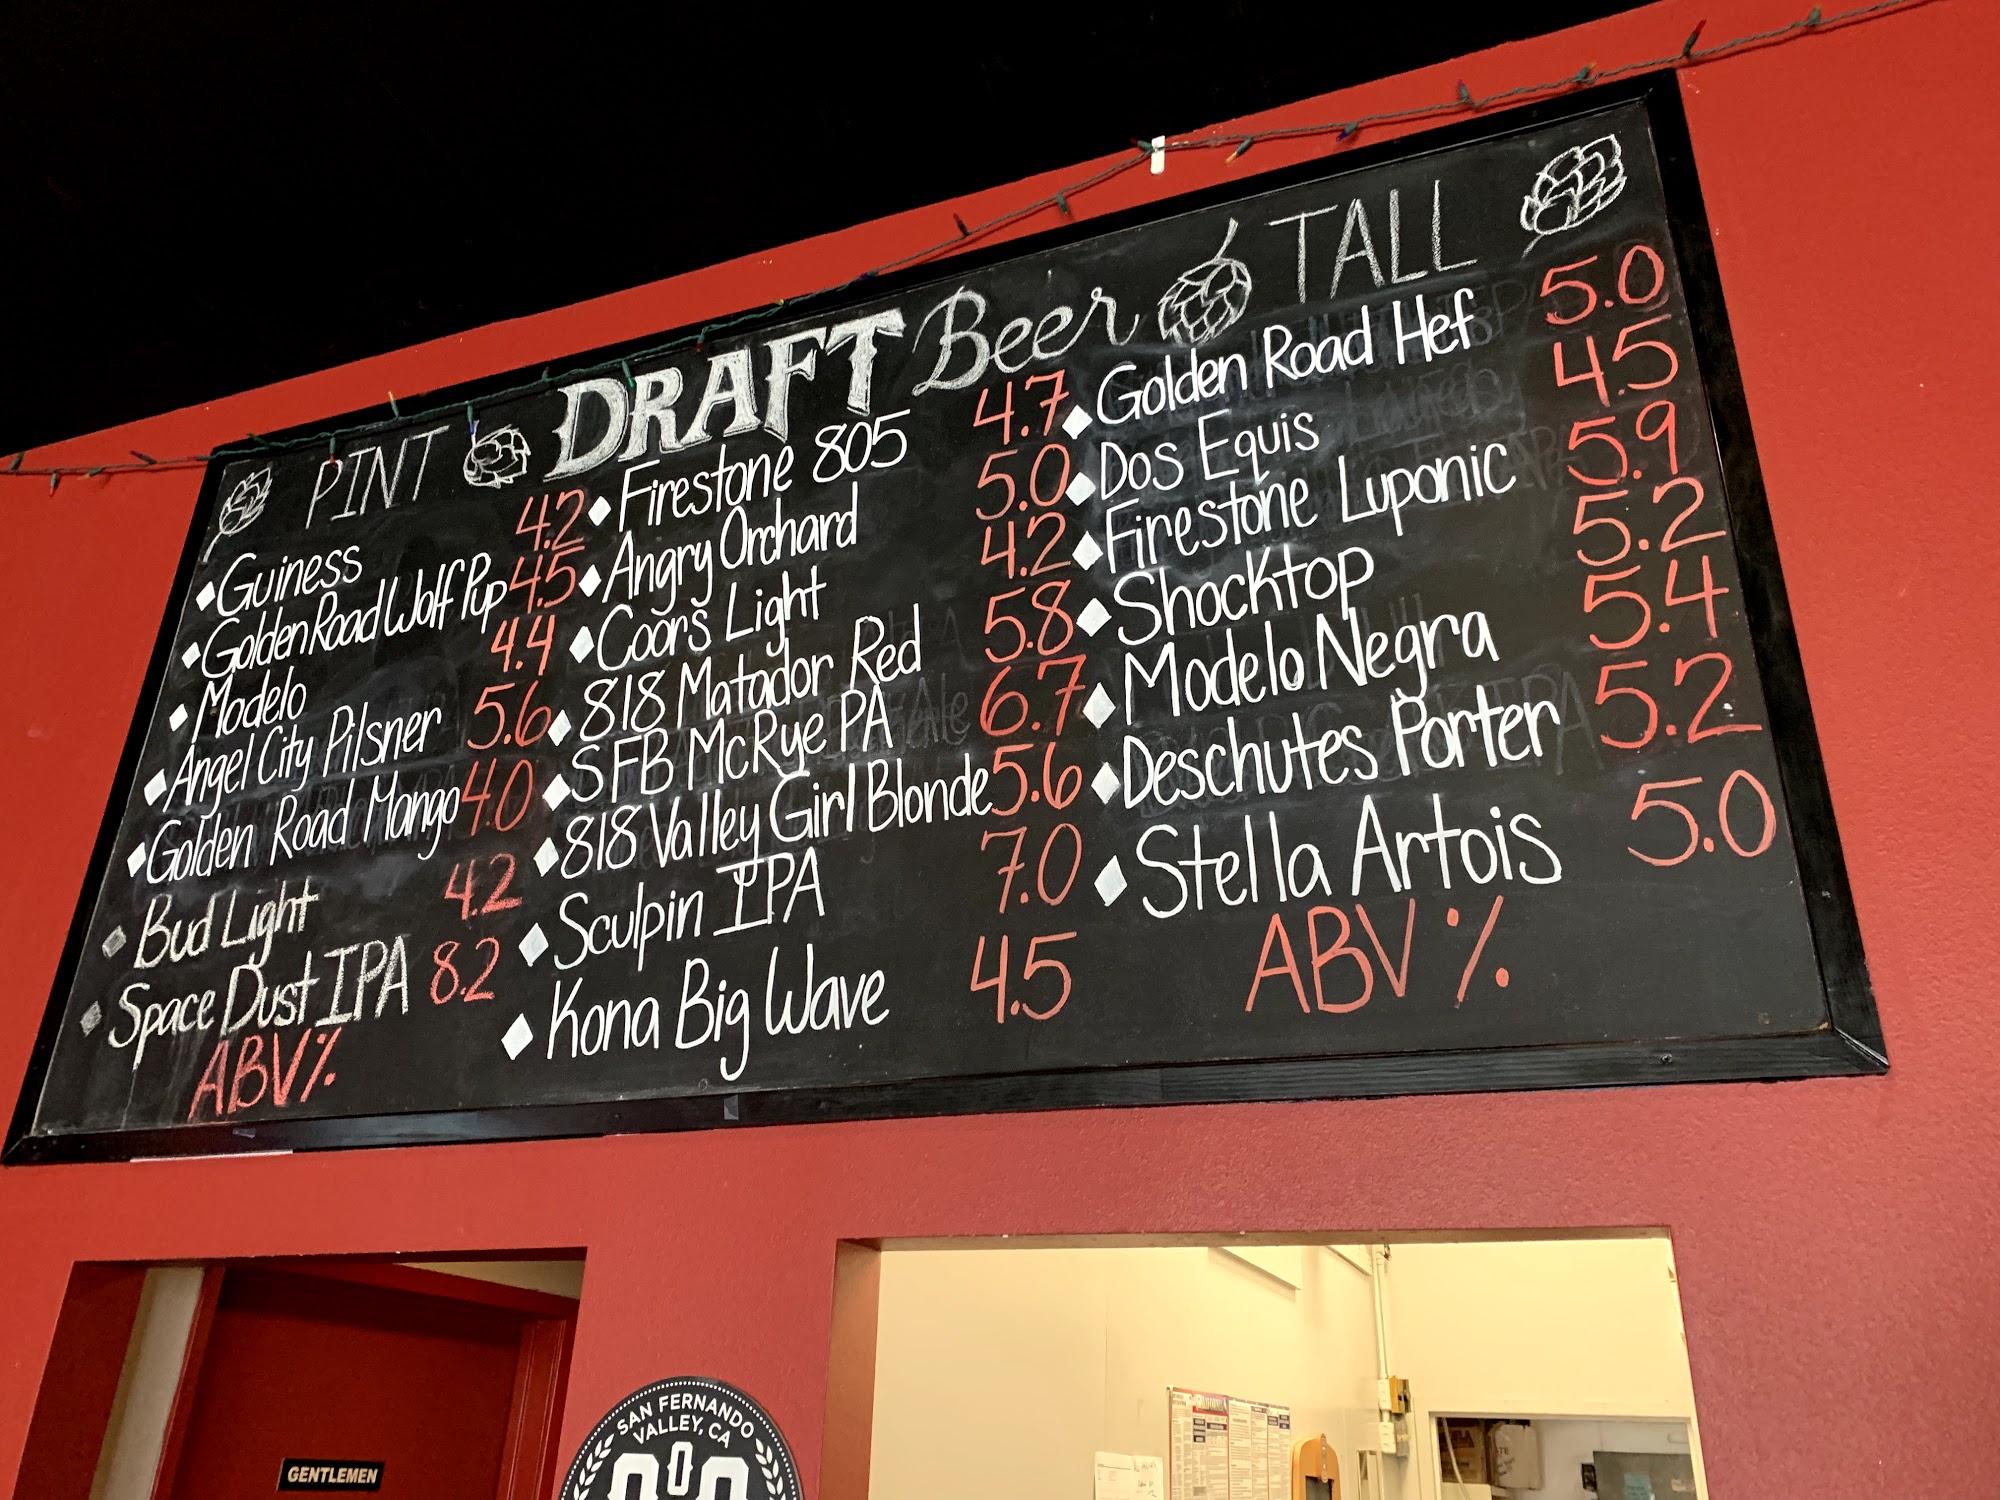 PINT DRAFT Beer TALL
Guiness 4.2
Golden Road Wolf Pup 4.5
Modelo 4.4
Angel City Pilsner 5.6
Golden Road Mango 4.0
Bud Light 4.2
Space Dust IPA 8.2
ABV%
Firestone 805 4.7
Angry Orchard 5.0
Coors Light 4.2
818 Matador Red 5.8
SFB McRye PA 6.7
818 Valley Girl Blonde 5.6
Sculpin IPA 7.0
Kona Big Wave 4.5
Golden Road Hef 5.0
Dos Equis 4.5
Firestone Luponic 5.9
Shocktop 5.2
Modelo Negra 5.4
Deschutes Porter 5.2
Stella Artois 5.0
ABV%
GENTLEMEN
SAN FERNANDO
VALLEY, CA